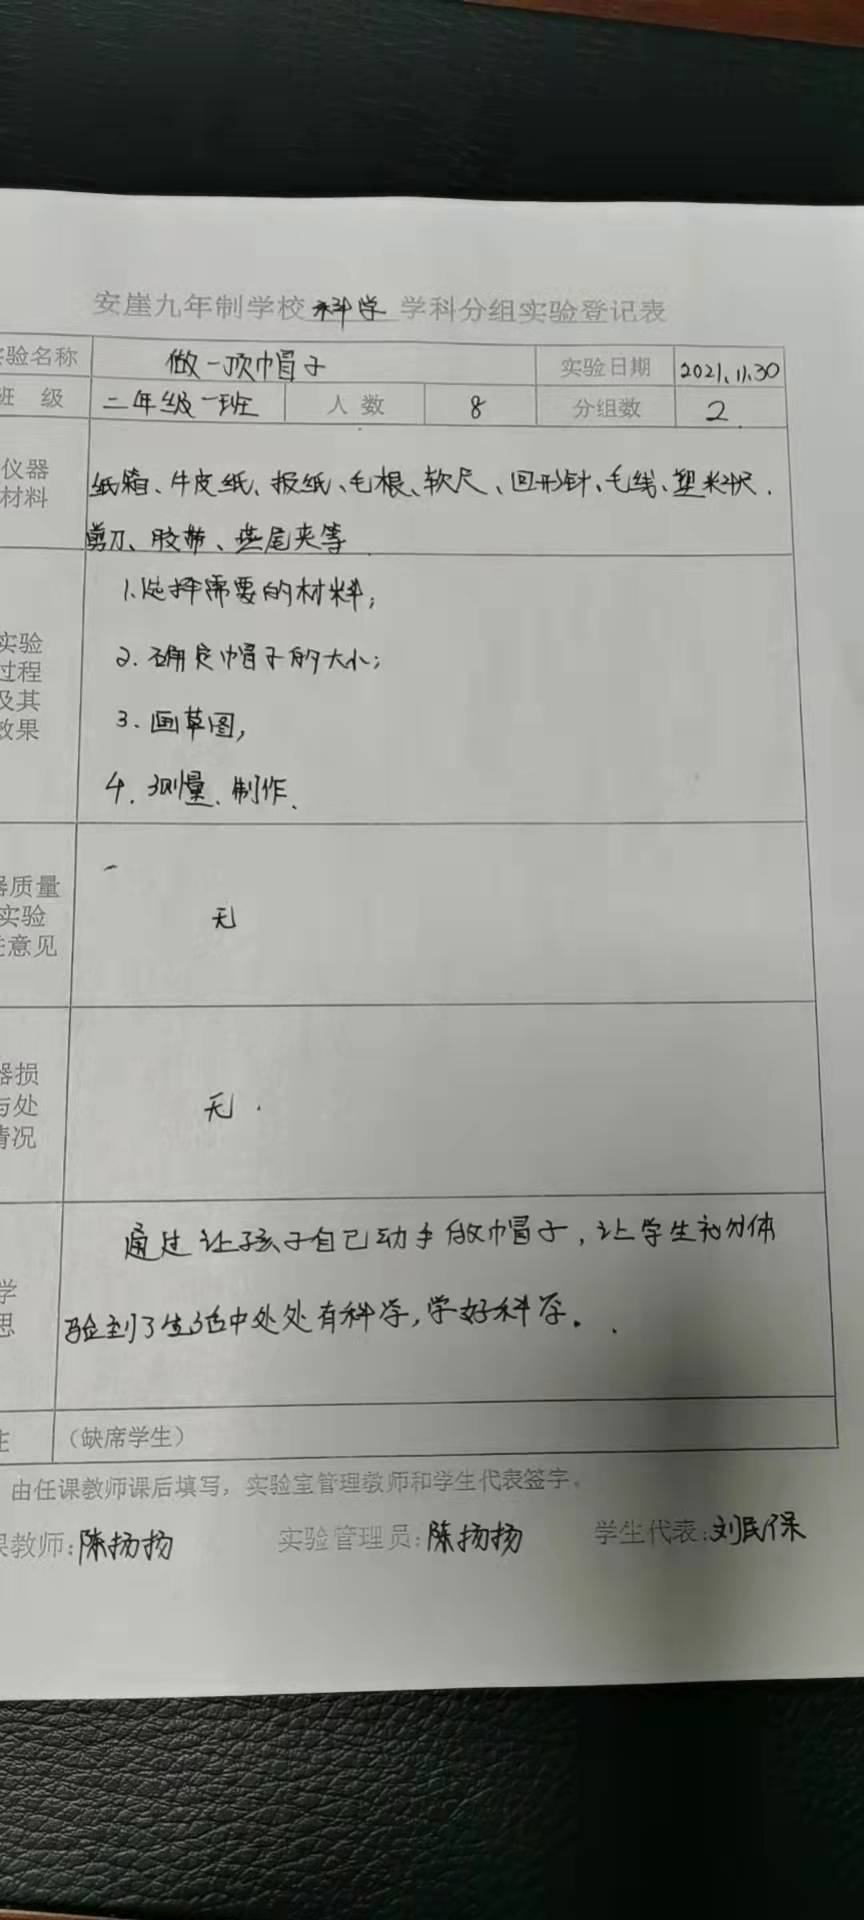 安崖九年制学校科学 学科分组实验登记表
验名称 做一顶帽子 实验日期 2021.11.30
班 级 二年级一班 人 数 8 分组数 2
仪器
材料
纸箱、牛皮纸、报纸、毛根、软尺、回形针、毛线、塑米尺、
剪刀、胶带、燕尾夹等
实验
过程
及其
效果
1.选择需要的材料;
2.确定帽子的大小;
3.画草图,
4.测量、制作、
器质量
实验
意见
无
器损
与处
情况
无.
学
思
通过让孩子自己动手做帽子,让学生初分体
验到了生活中处处有科学,学好科学。
(缺席学生)
由任课教师课后填写,实验室管理教师和学生代表签字。
课教师:陈扬扬 实验管理员:陈扬扬 学生代表:刘民保